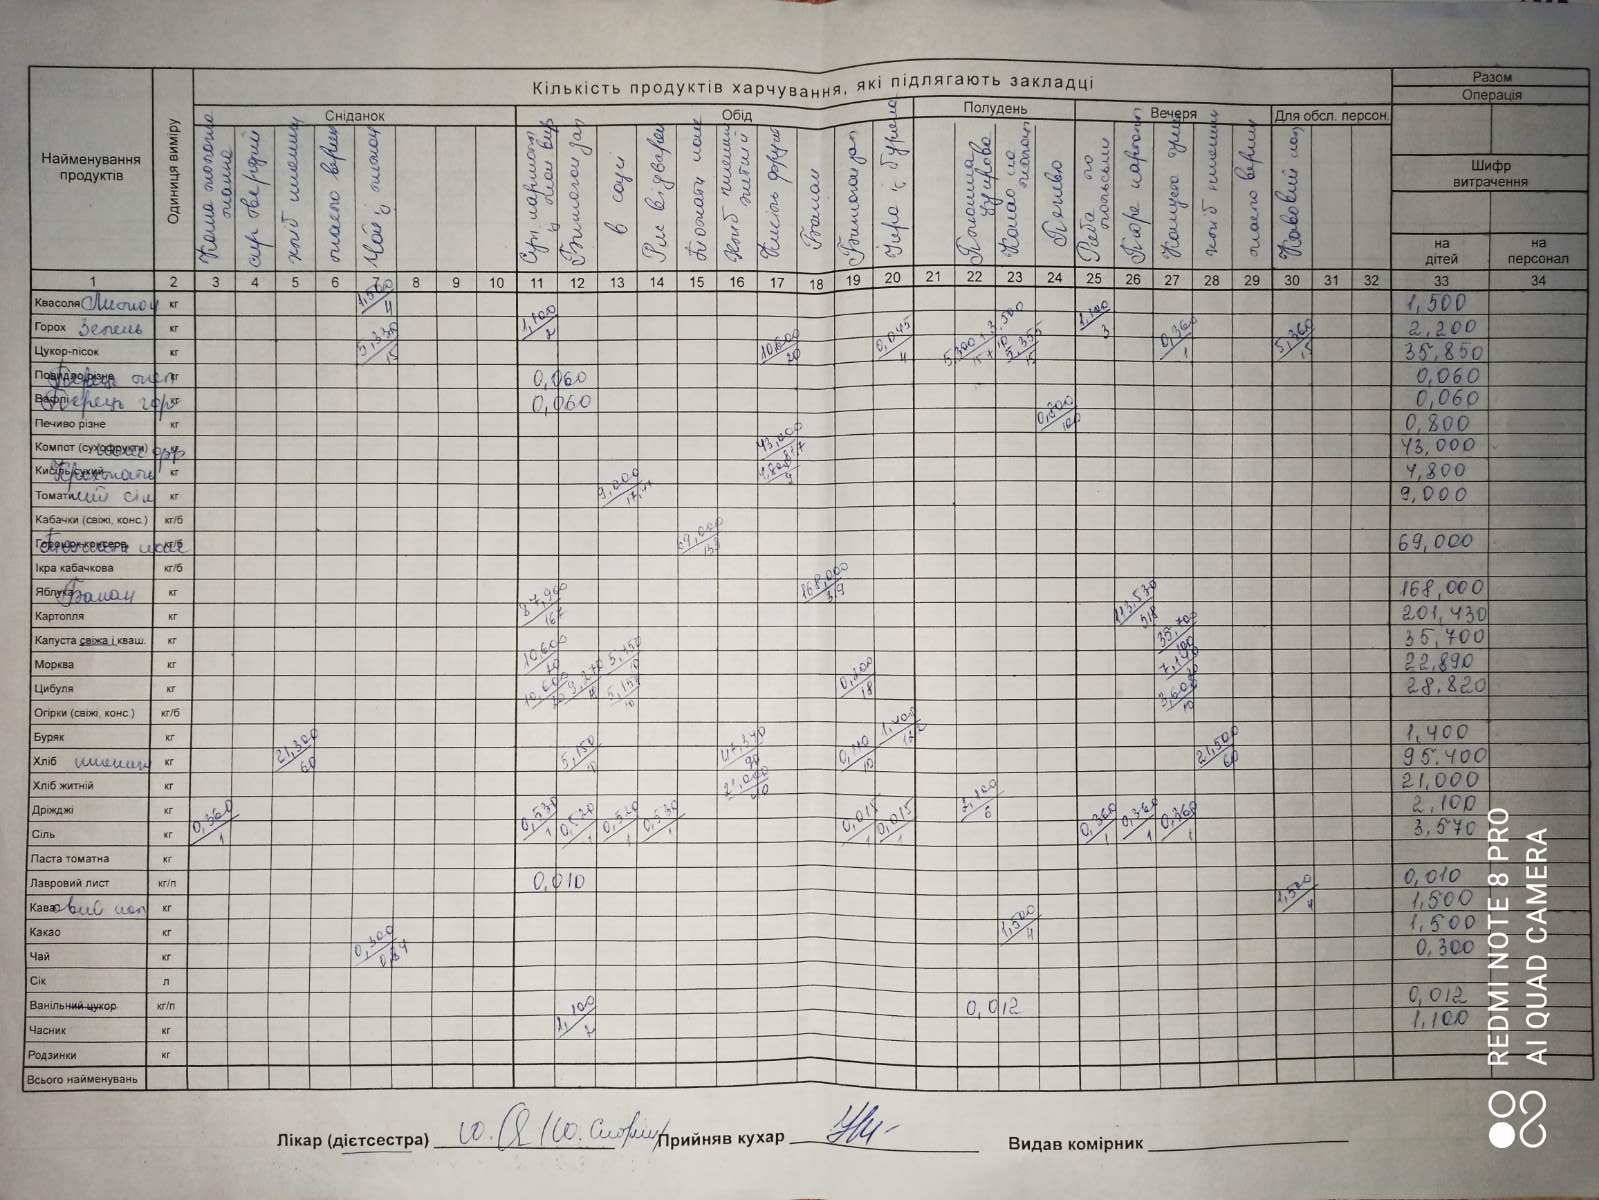 Кількість продуктів харчування, які підлягають закладці
Разом
Операція
Найменування продуктів
Одиниця виміру
Сніданок
Обід
Полудень
Вечеря
Для обсл. персон.
Шифр витрачення
на дітей
на персонал
сир твердий
хліб пшенич
масло верш
в соусі
Банан
Какао на молоці
Печиво
Пюре картоп
1 2 3 4 5 6 7 8 9 10 11 12 13 14 15 16 17 18 19 20 21 22 23 24 25 26 27 28 29 30 31 32 33 34
Квасоля Лимон кг 1,500/4 1,500
Горох Зелень кг 1,100/2 1,100/3 2,200
Цукор-пісок кг 5,330/15 10,600/20 0,045/4 5,355/15 0,360/1 5,360/15 35,850
Повидло різне кг 0,060 0,060
Вафлі Перець гор кг 0,060 0,060
Печиво різне кг 0,800/100 0,800
Компот (сухофрукти) кг 43,000 43,000
Кисіль сухий кг 4,800/9 4,800
Томатний сік кг 9,000 9,000
Кабачки (свіжі, конс.) кг/б
Горошок консерв. кг/б 69,000 69,000
Ікра кабачкова кг/б
Яблука Банан кг 168,000/39 168,000
Картопля кг 87,960/167 113,530/518 201,430
Капуста свіжа і кваш. кг 35,700 35,700
Морква кг 10,600/10 5,150/10 7,140 22,890
Цибуля кг 10,600 9,270 5,150/10 18 3,600/10 28,820
Огірки (свіжі, конс.) кг/б
Буряк кг 1,400 1,400
Хліб пшенич кг 21,300/60 5,150 47,340/90 0,110/10 21,500/60 95,400
Хліб житній кг 21,000/40 21,000
Дріжджі кг 2,100/6 2,100
Сіль кг 0,360/1 0,530/1 0,520/1 0,520/1 0,530/1 0,015/1 0,015/1 0,360/1 0,360/1 0,360/1 3,570
Паста томатна кг
Лавровий лист кг/п 0,010 0,010
Кавовий нап кг 1,500/4 1,500
Какао кг 1,500/4 1,500
Чай кг 0,300 0,300
Сік л
Ванільний цукор кг/п 0,012 0,012
Часник кг 1,100/2 1,100
Родзинки кг
Всього найменувань
Лікар (дієтсестра) Прийняв кухар Видав комірник
REDMI NOTE 8 PRO
AI QUAD CAMERA